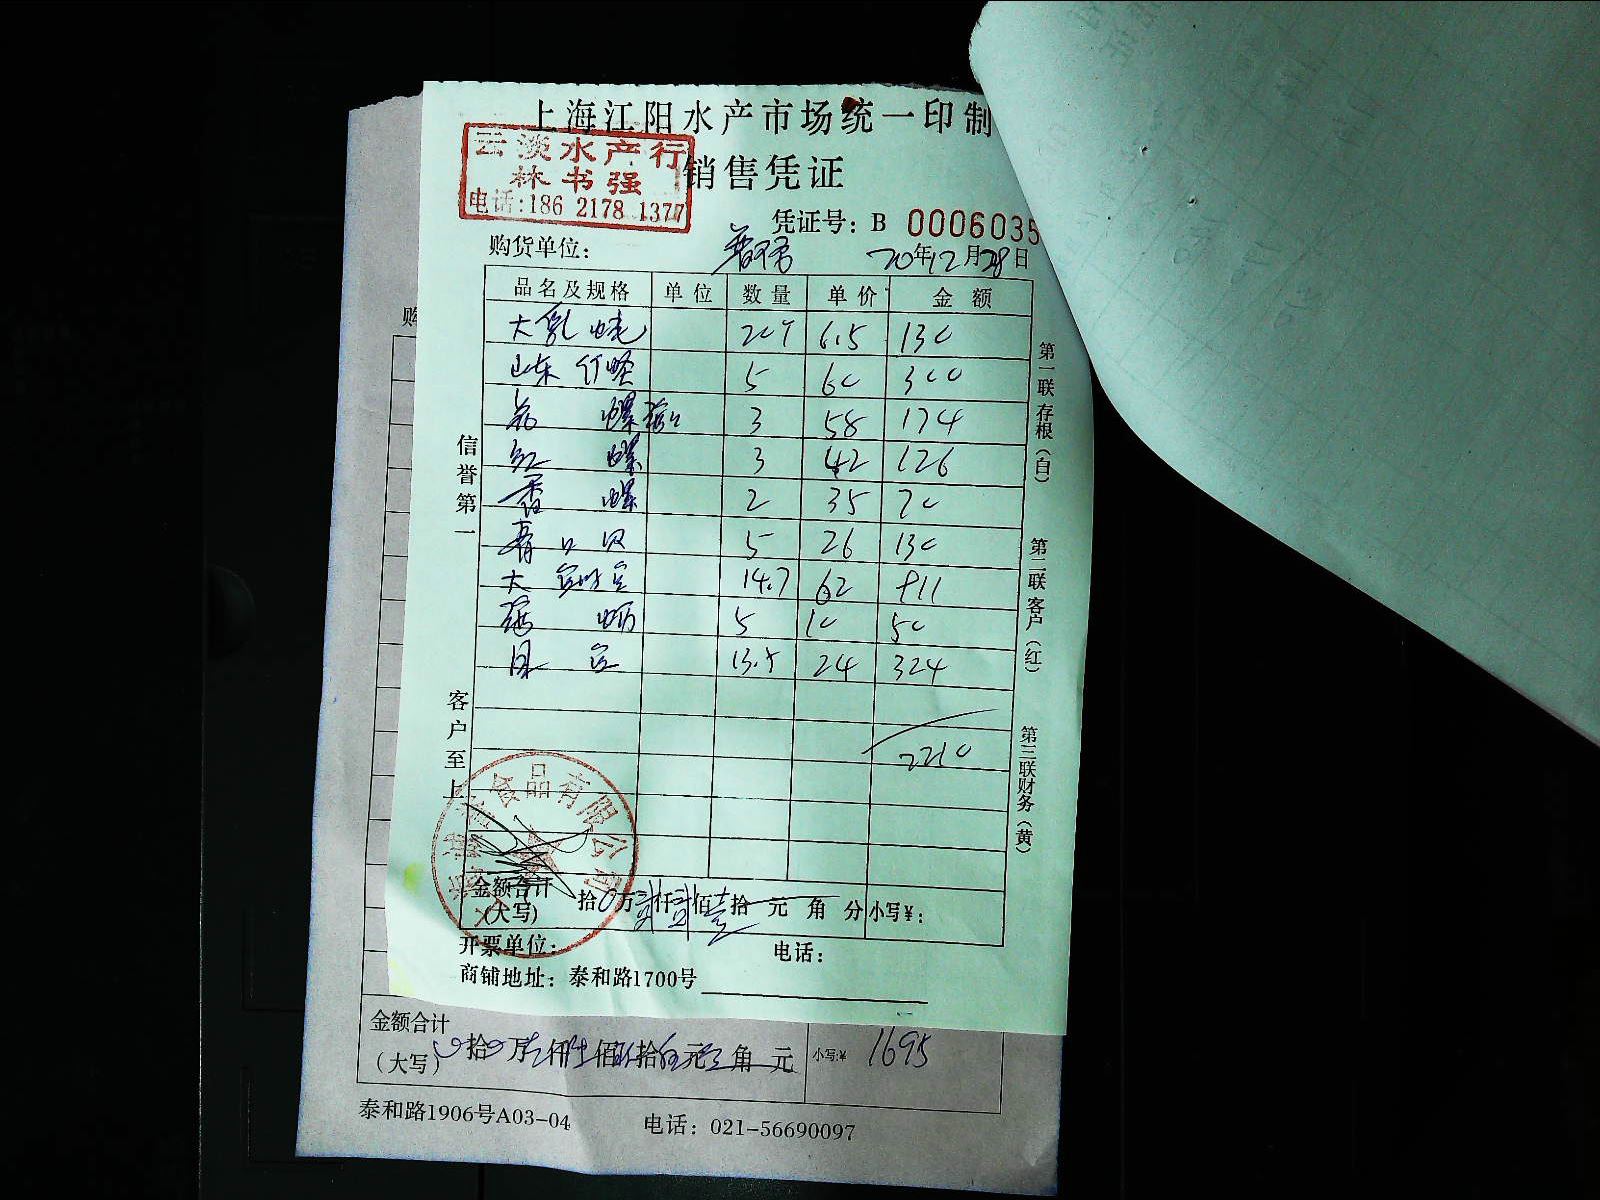 上海江阳水产市场统一印制
云淡水产行
林书强
电话:186 2178 1377
销售凭证
凭证号: B 0006035
购货单位:
20年12月28日
品名及规格 单位 数量 单价 金额
大乳 6.5 130
山东 5 60 300
花螺 3 58 174
红螺 3 42 126
香螺 2 35 70
青口贝 5 26 130
大 14.7 62 911
5 10 50
13.5 24 324
2210
信誉第一
客户至上
第一联存根(白)
第二联客户(红)
第三联财务(黄)
食品有限公司
金额合计
(大写)
拾0万贰仟贰佰壹拾元角分
小写¥:
开票单位:
电话:
商铺地址: 泰和路1700号
购
金额合计
(大写)
拾万仟佰拾元角元
小写:¥ 1695
泰和路1906号A03-04
电话: 021-56690097